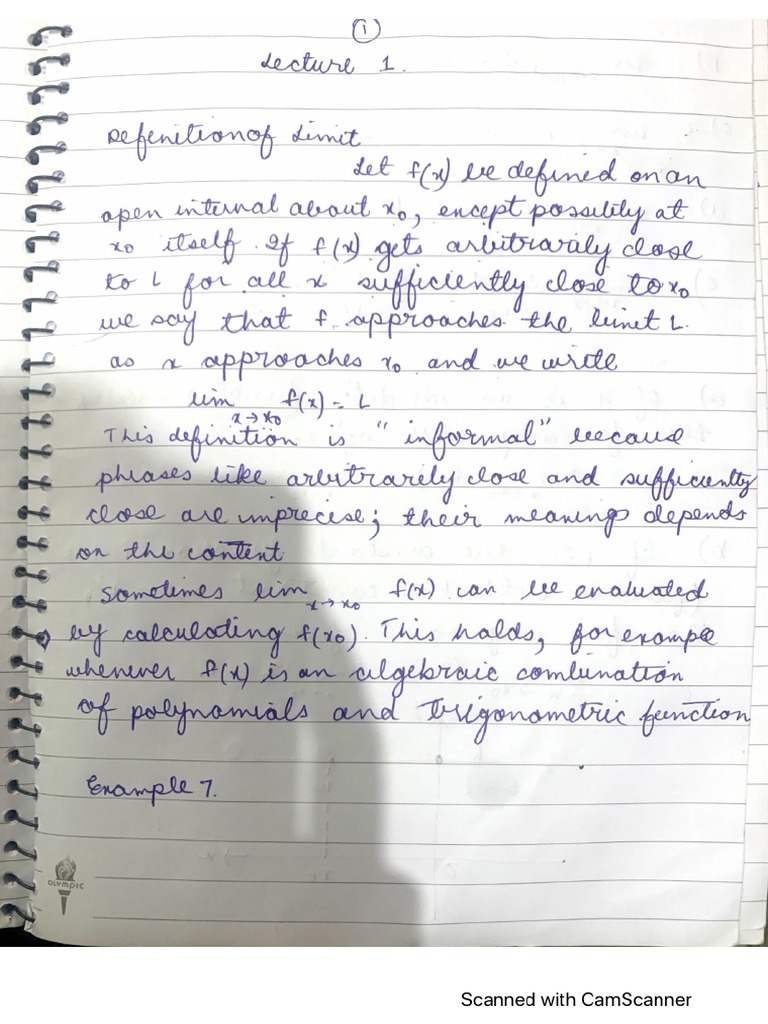 1
Lecture 1.
Defenition of Limit
Let f(x) be defined on an
open internal about x₀, except possibily at
x₀ itself. If f(x) gets arbitrarily close
to L for all x sufficiently close to x₀
we say that f approaches the limit L.
as x approaches x₀ and we write
lim x→x₀ f(x) = L
This definition is "informal" because
phrases like arbitrarely close and sufficiently
close are imprecise; their meaning depends
on the content
Sometimes lim x→x₀ f(x) can be evaluated
by calculating f(x₀). This holds, for example
whenever f(x) is an algebraic combination
of polynomials and trigonometric function
Example 7.
OLYMPIC
Scanned with CamScanner